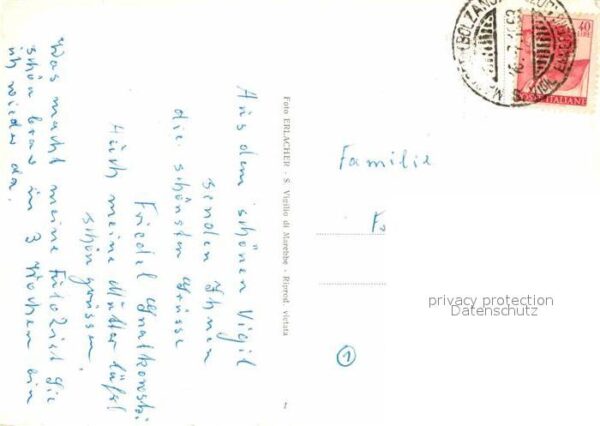 Aus dem schönen Vigil
senden Ihnen
die schönsten Grüsse
Friedel
Auch meine Mutter läßt
schön grüssen.
Was macht meine Ist Sie
schön brav in 3 Wochen bin
ich wieder da.
Foto ERLACHER - S. Vigilio di Marebbe - Riprod. vietata
Familie
F
40
LIRE
POSTE ITALIANE
(BOLZANO)
privacy protection
Datenschutz
1